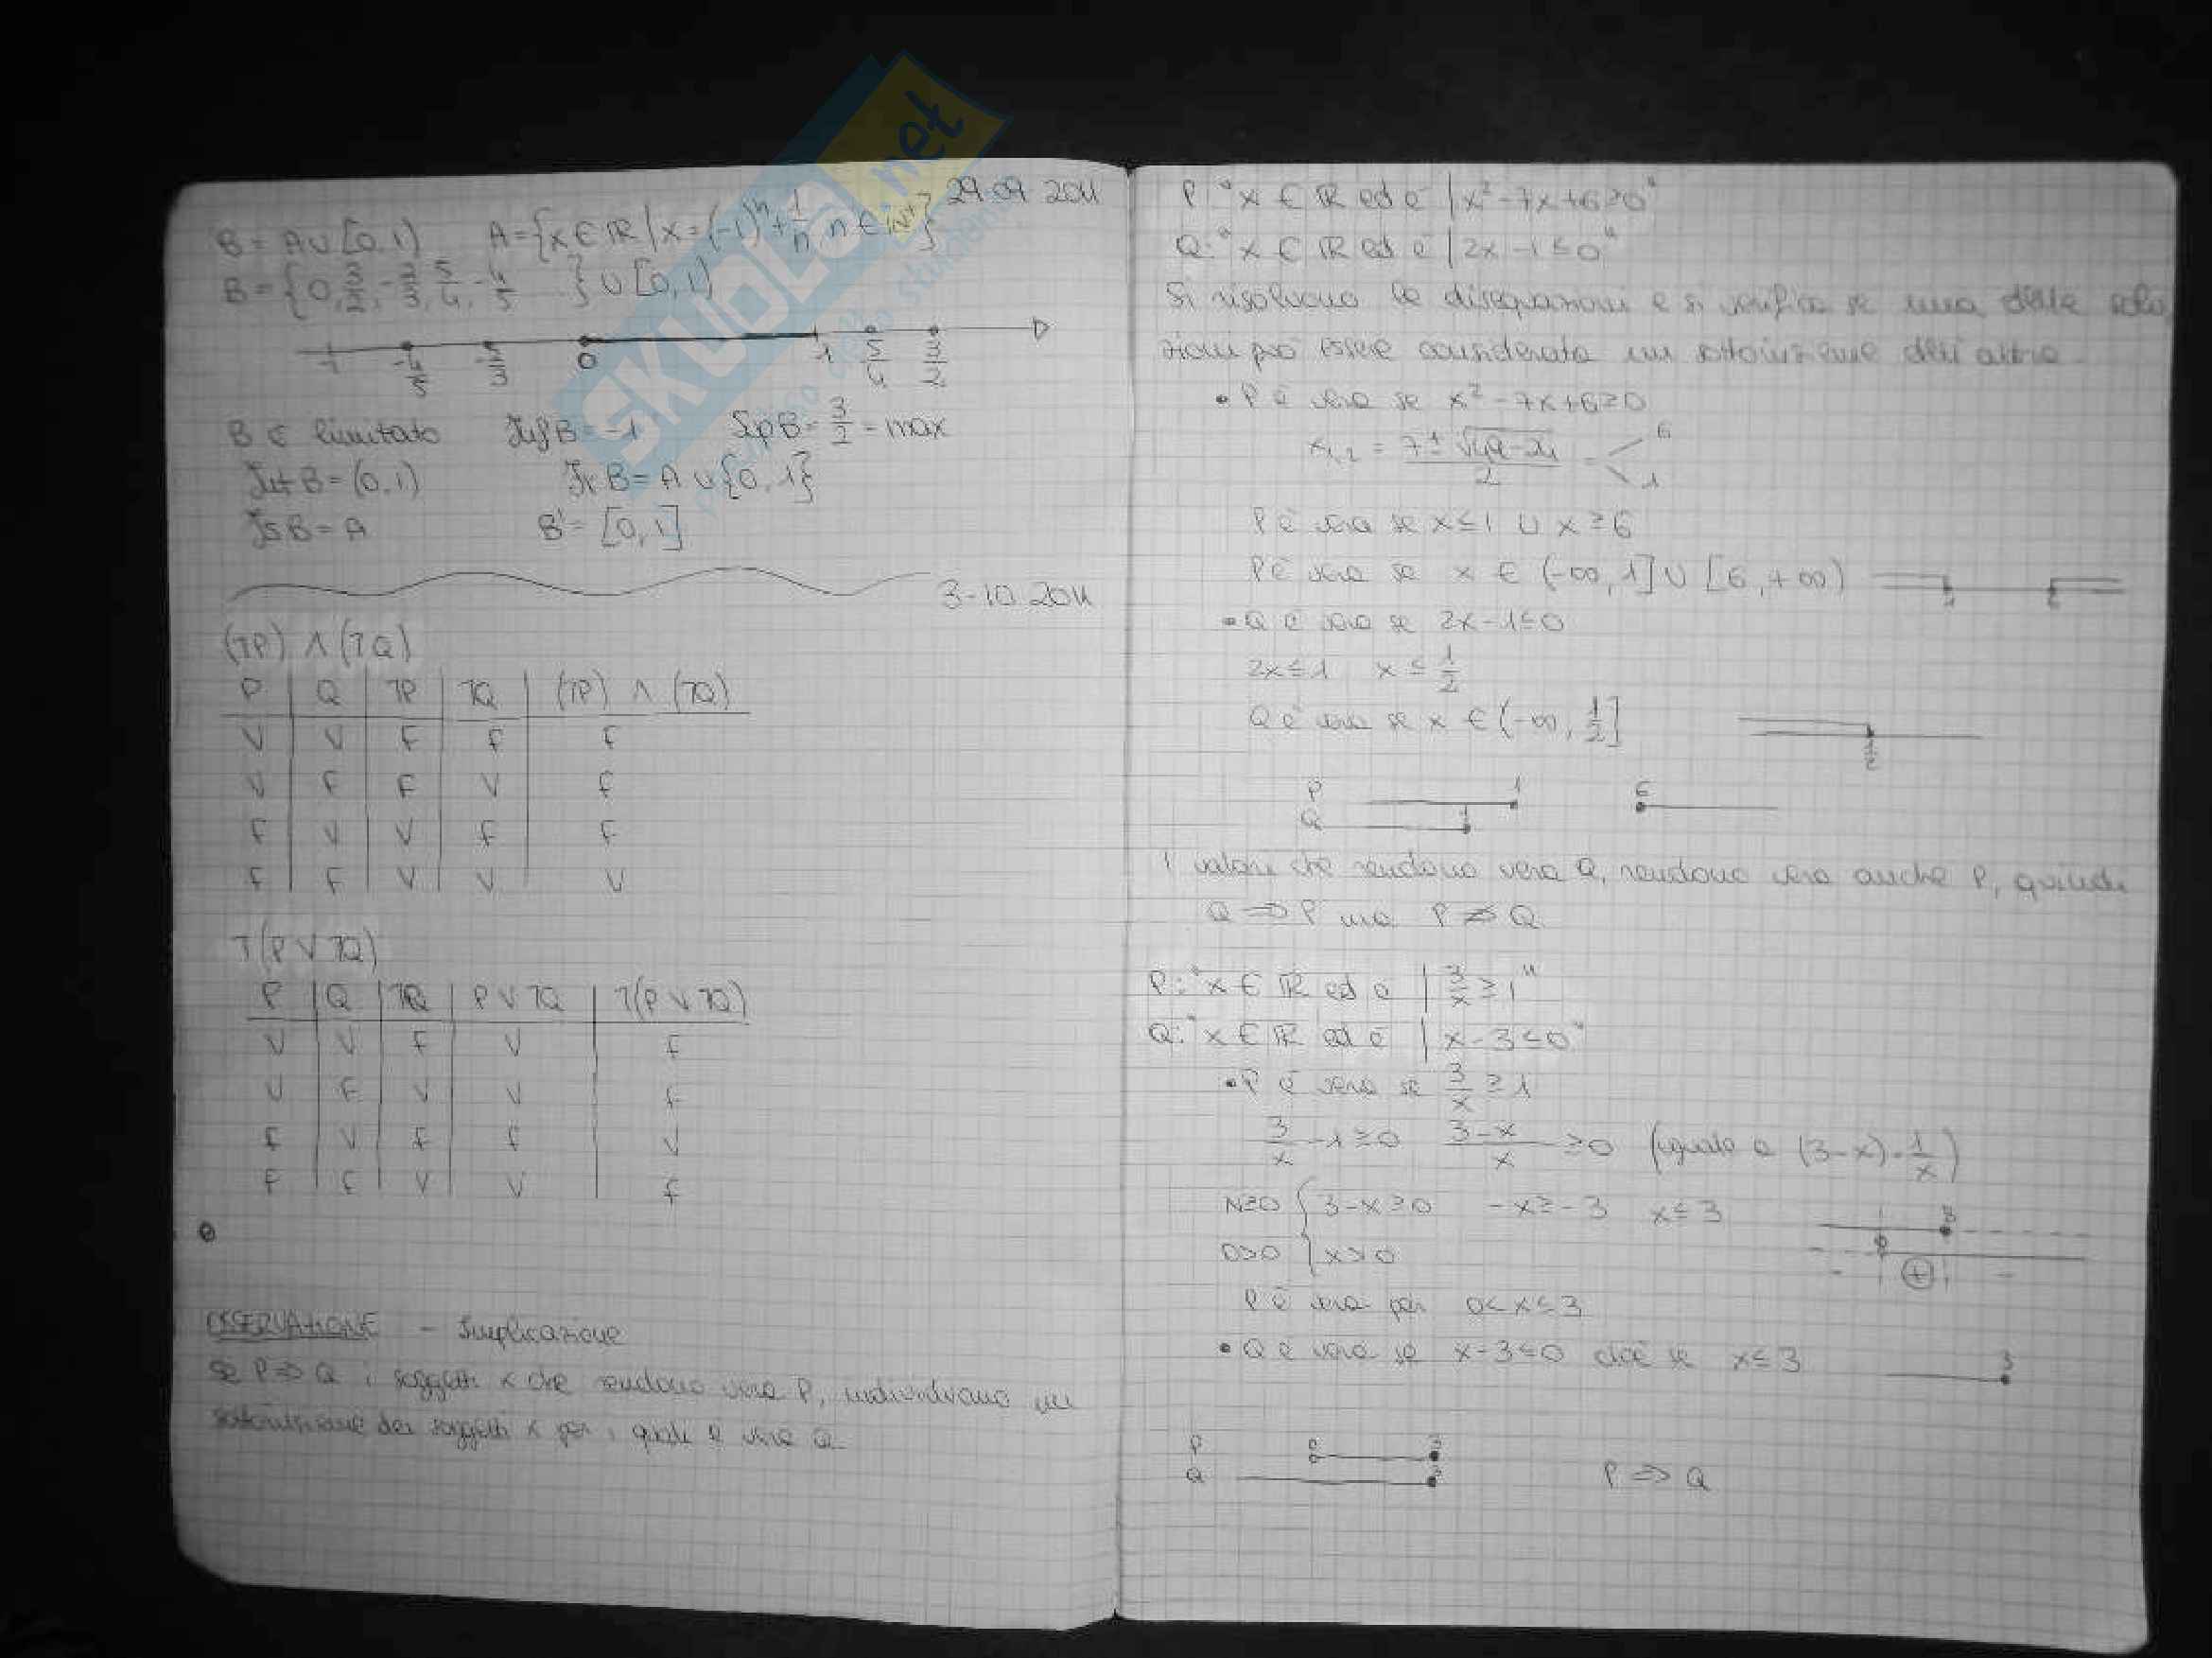 29.09 2011
B = A ∪ [0,1) A = {x ∈ ℝ | x = (-1)^n + 1/n, n ∈ ℕ+}
B = {0, 3/2, -2/3, 5/4, -4/5 ...} ∪ [0,1)
-1 -4/5 -2/3 0 1 5/4 3/2
B è limitato Inf B = -1 Sup B = 3/2 = max
Int B = (0,1) Fr B = A ∪ {0,1}
Is B = A B' = [0,1]
3-10 2011
(¬P) ∧ (¬Q)
P | Q | ¬P | ¬Q | (¬P) ∧ (¬Q)
V | V | F | F | F
V | F | F | V | F
F | V | V | F | F
F | F | V | V | V
¬(P ∨ ¬Q)
P | Q | ¬Q | P ∨ ¬Q | ¬(P ∨ ¬Q)
V | V | F | V | F
V | F | V | V | F
F | V | F | F | V
F | F | V | V | F
OSSERVAZIONE - Implicazione
se P ⇒ Q i soggetti x che rendono vera P, individuano un
sottoinsieme dei soggetti x per i quali è vera Q
P: "x ∈ ℝ ed è | x² - 7x + 6 ≥ 0"
Q: "x ∈ ℝ ed è | 2x - 1 ≤ 0"
Si risolvono le disequazioni e si verifica se una delle solu
zioni può essere considerata un sottoinsieme dell'altra
• P è vera se x² - 7x + 6 ≥ 0
x1,2 = (7 ± √(49 - 24))/2 = 6 1
P è vera se x ≤ 1 ∪ x ≥ 6
P è vera se x ∈ (-∞, 1] ∪ [6, +∞) 1 6
• Q è vera se 2x - 1 ≤ 0
2x ≤ 1 x ≤ 1/2
Q è vera se x ∈ (-∞, 1/2] 1/2
P 1 6
Q
I valori che rendono vera Q, rendono vera anche P, quindi
Q ⇒ P ma P ⇏ Q
P: "x ∈ ℝ ed è | 3/x ≥ 1"
Q: "x ∈ ℝ ed è | x - 3 ≤ 0"
• P è vera se 3/x ≥ 1
3/x - 1 ≥ 0 (3 - x)/x ≥ 0 (uguale a (3-x)·1/x)
N≥0 { 3 - x ≥ 0 -x ≥ -3 x ≤ 3 3
D>0 { x > 0 0
- + -
P è vera per 0 < x ≤ 3
• Q è vera se x - 3 ≤ 0 cioè se x ≤ 3 3
P 0 3
Q 3 P ⇒ Q